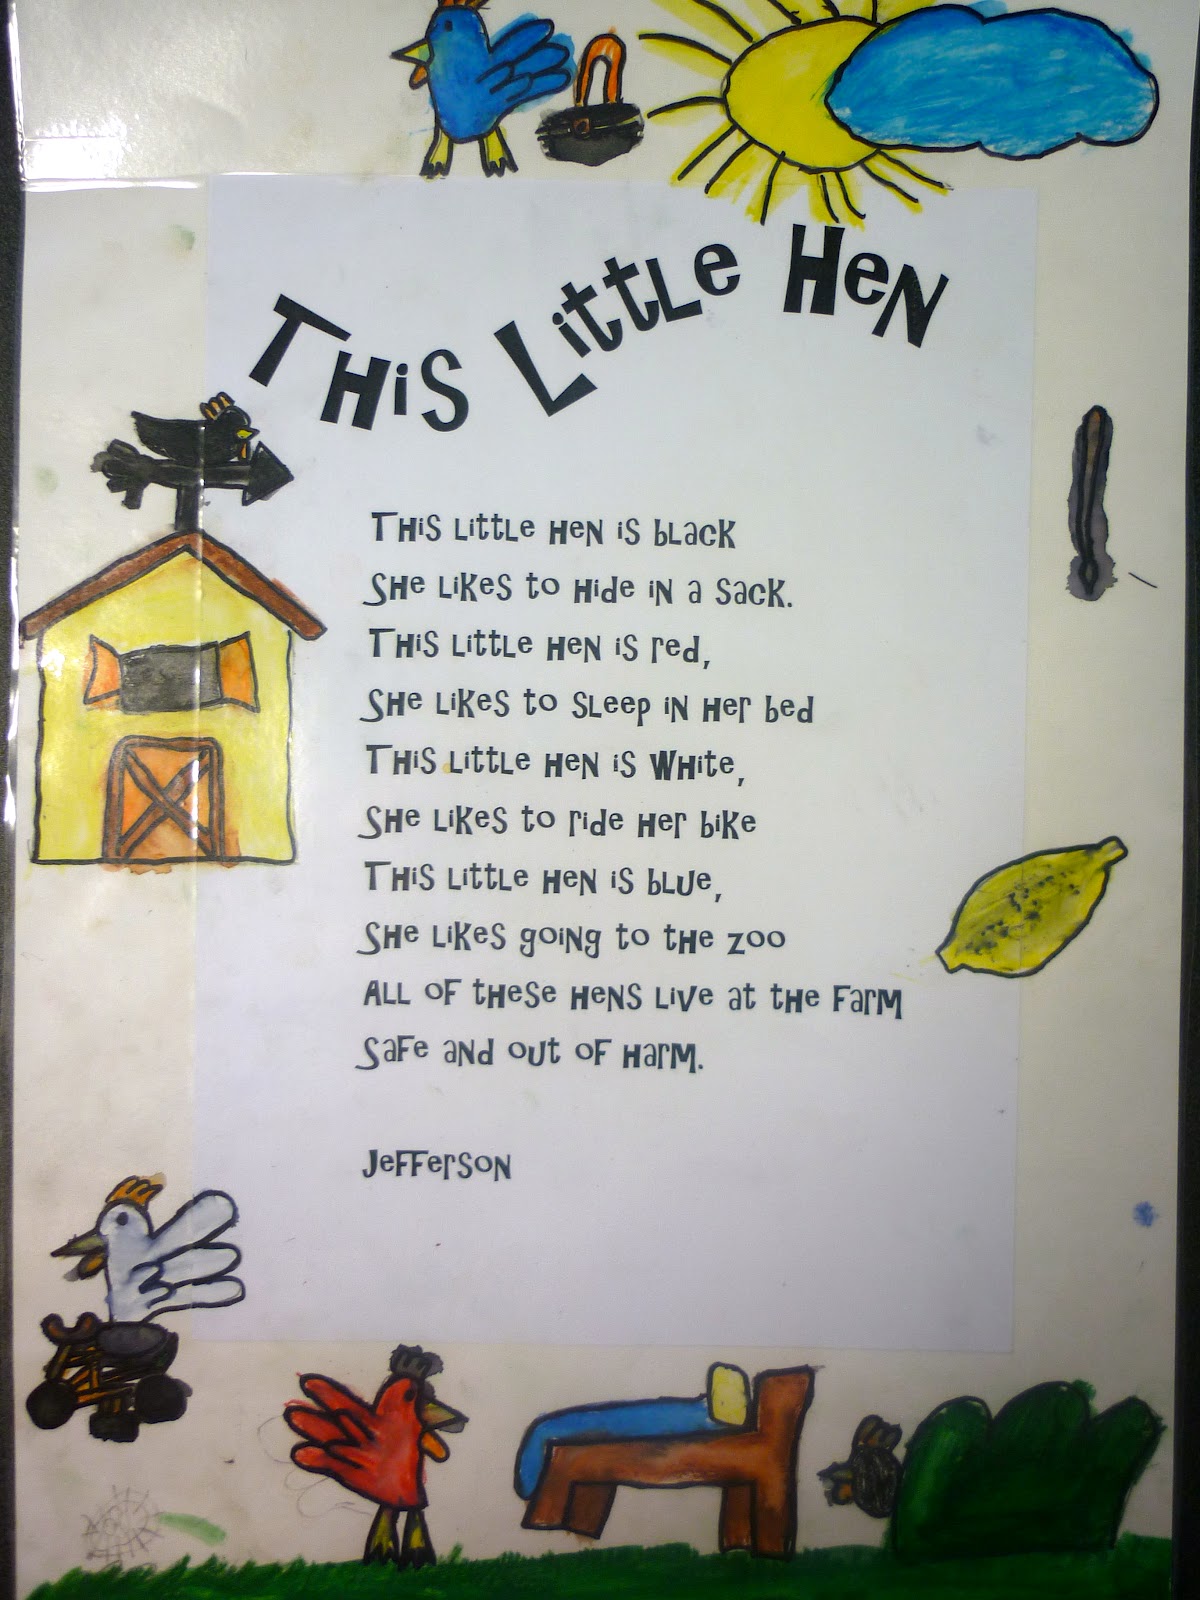 This Little Hen
This little hen is black
She likes to hide in a sack.
This little hen is red,
She likes to sleep in her bed
This little hen is White,
She likes to ride her bike
This little hen is blue,
She likes going to the zoo
All of these hens live at the farm
Safe and out of harm.
Jefferson